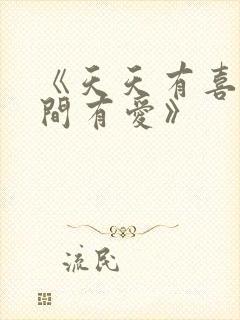 《天天有喜
間有愛》
流民